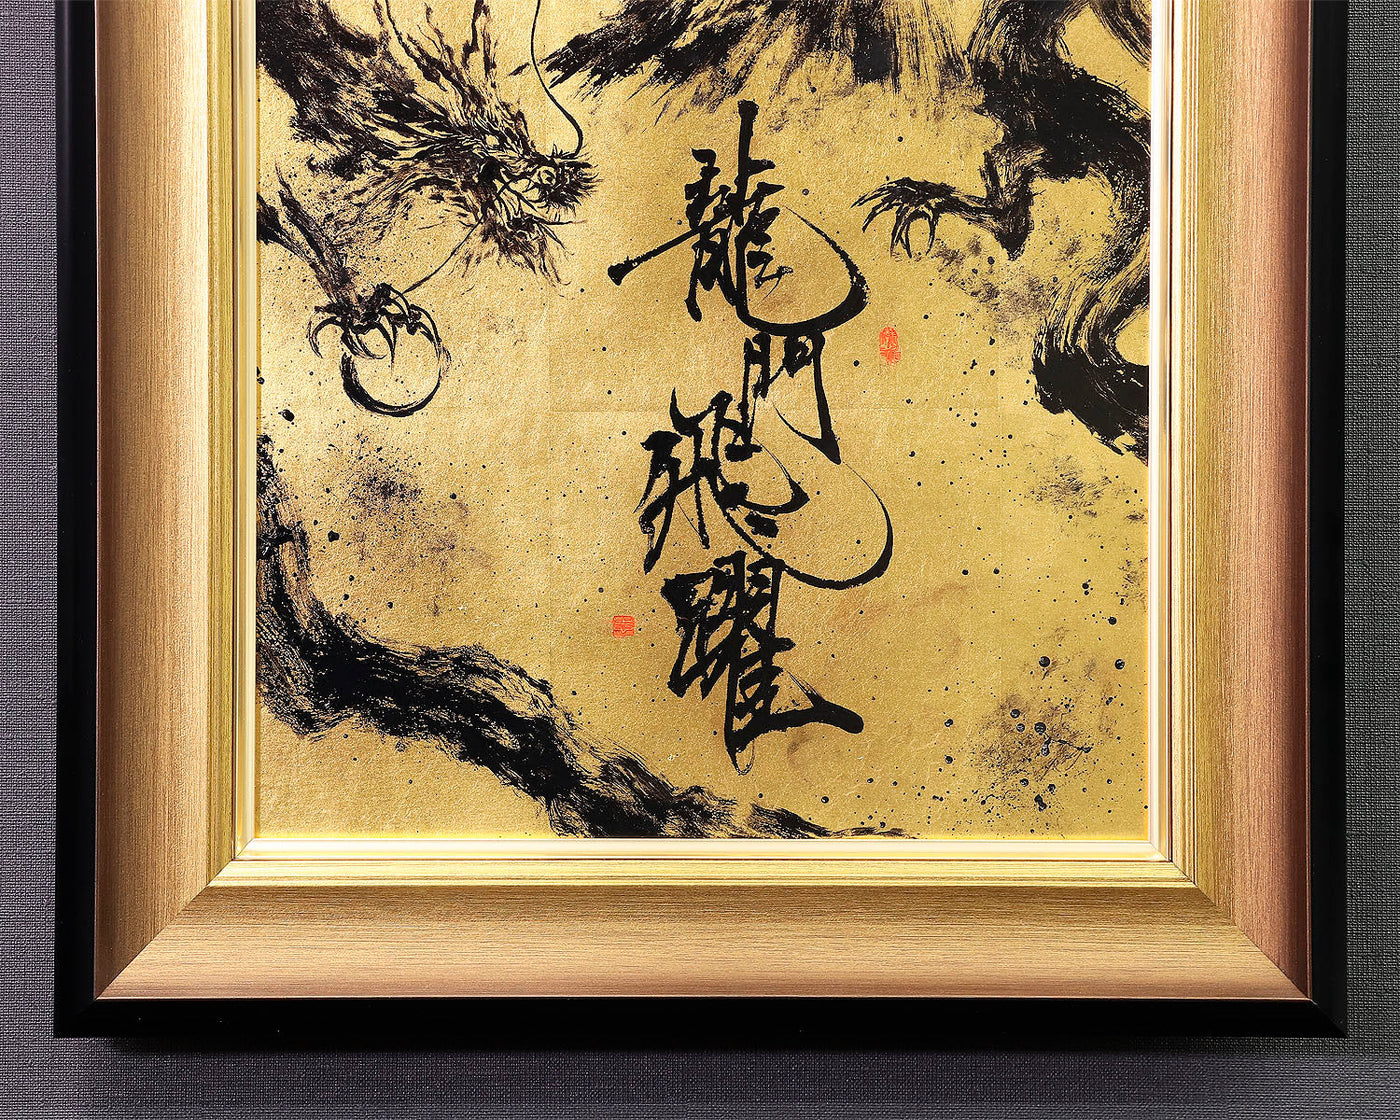 龍門飛躍